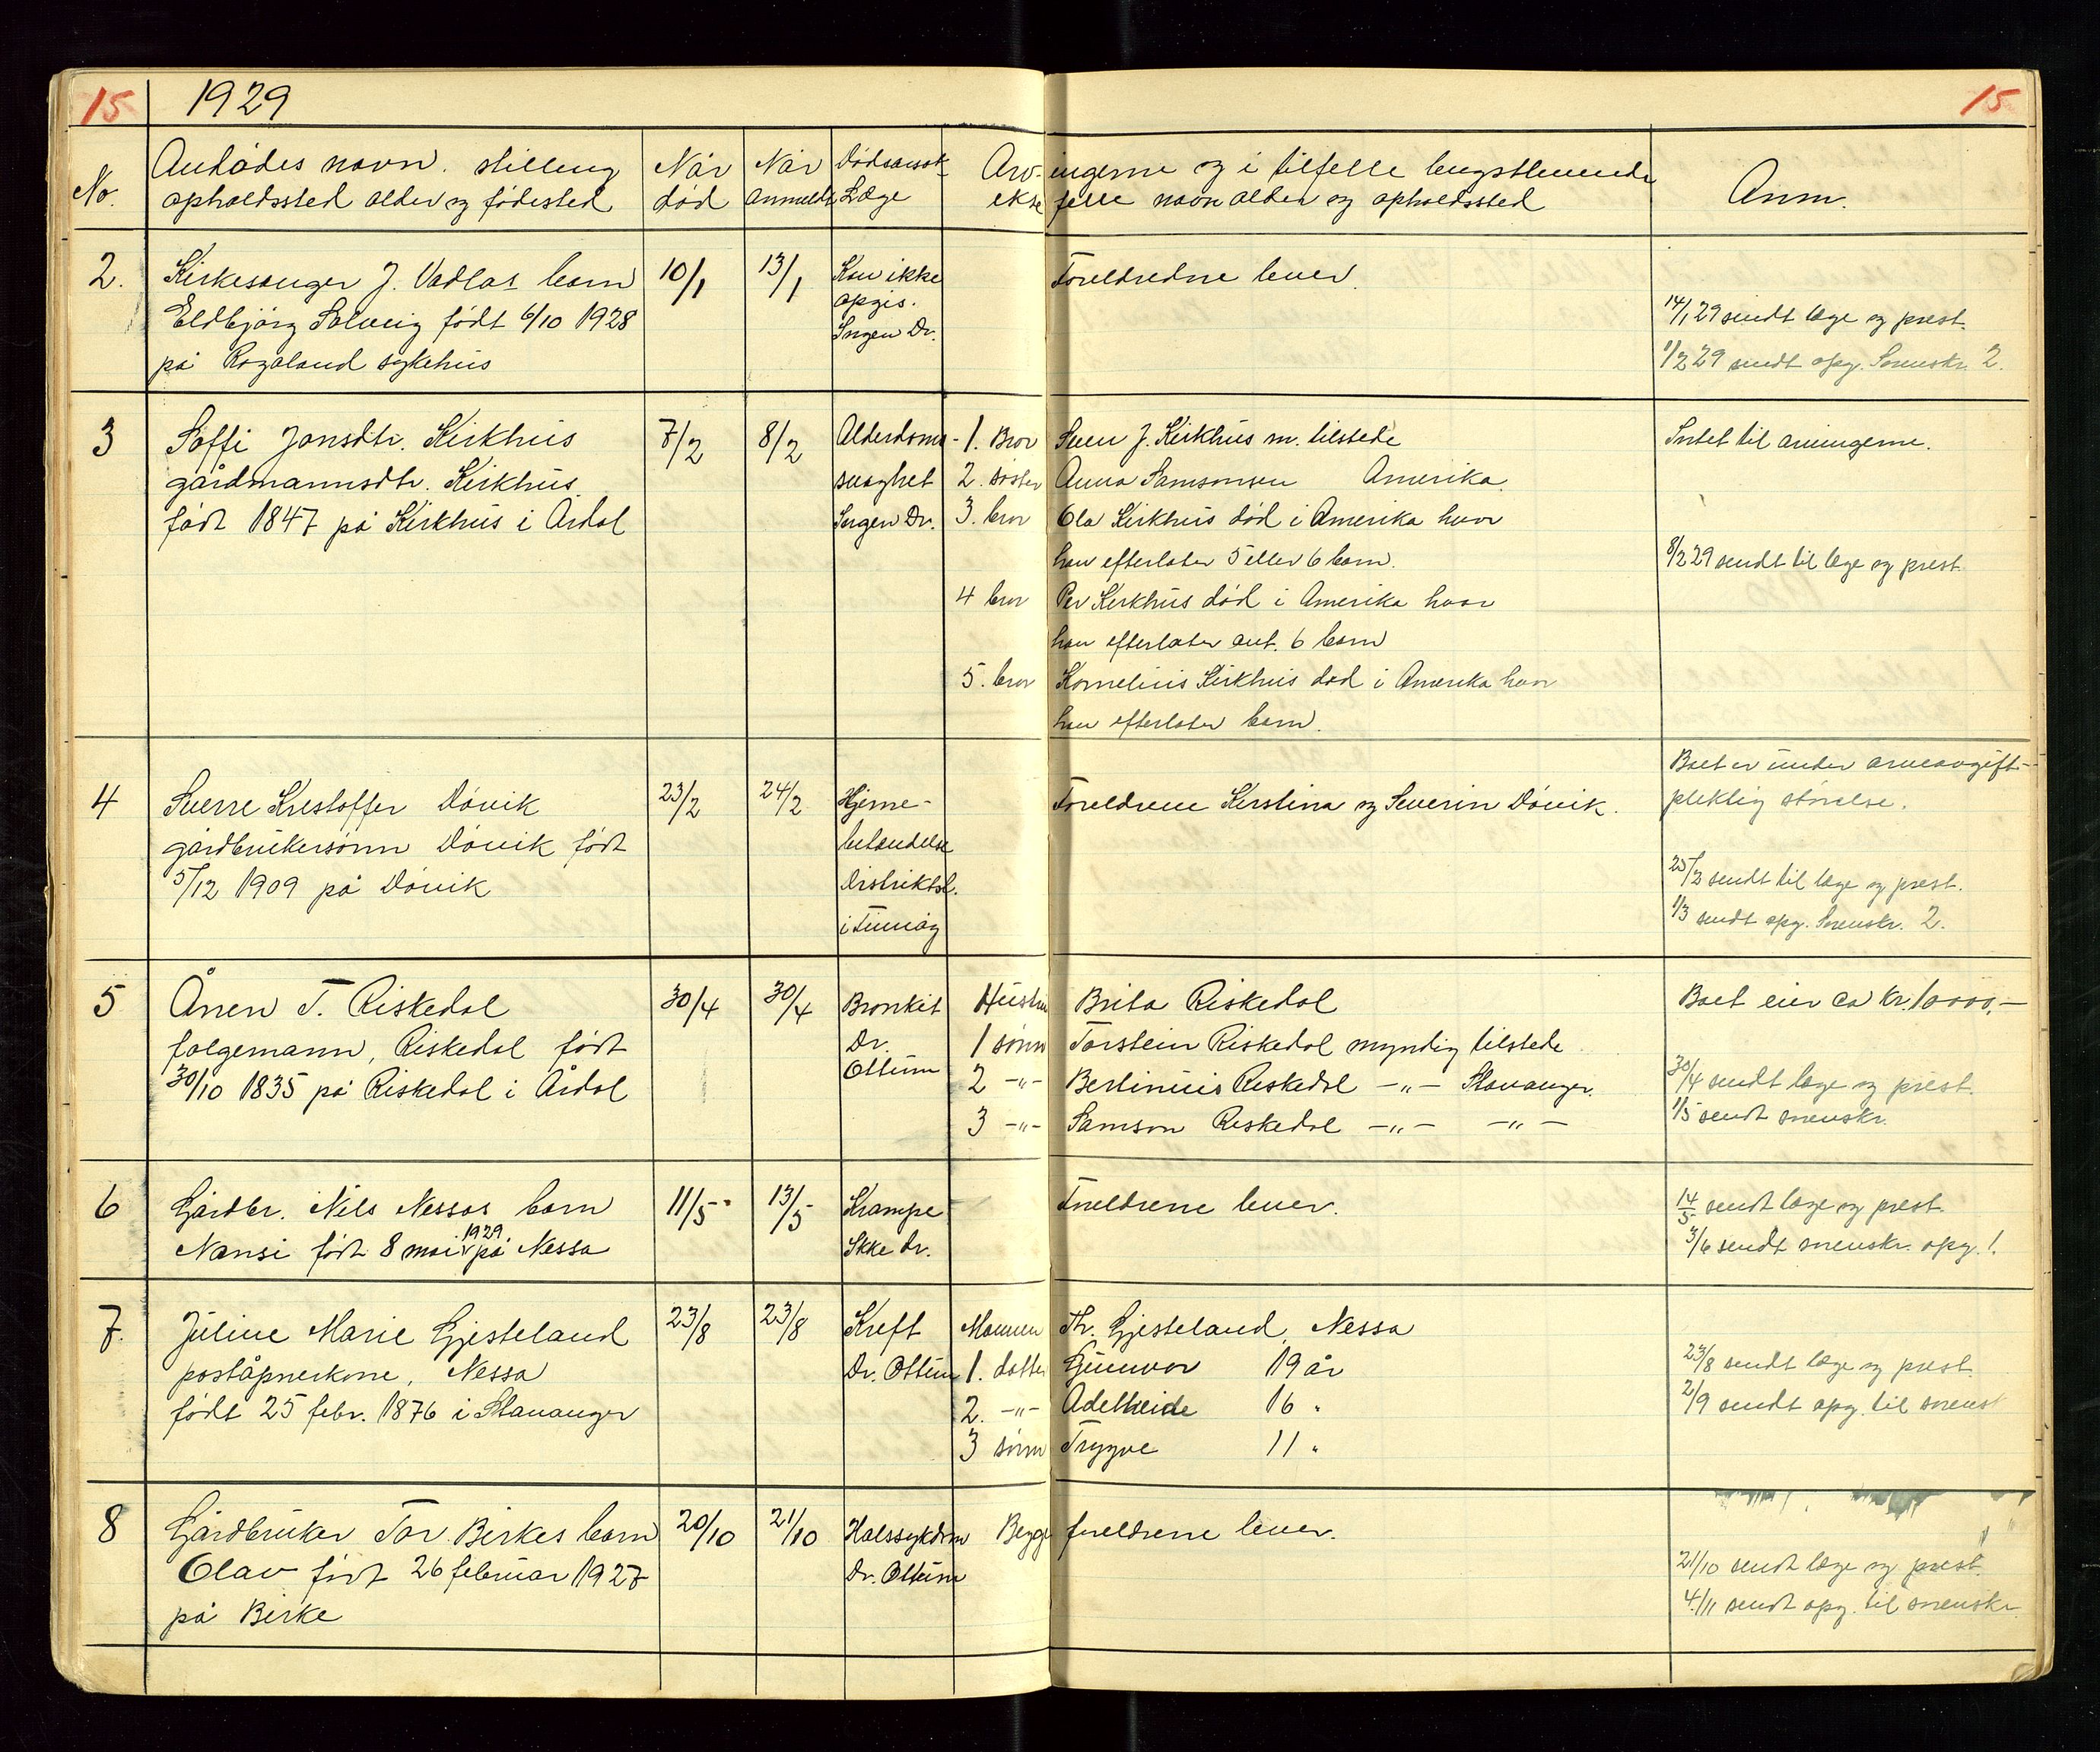 15 1929 15
No. Avdødes navn. stilling
opholdssted alder og fødested
Når
død
Når
anmeldt
Dødsårsak
Læge
Arvingerne og i tilfelle lengstlevende
ektefelle navn alder og opholdssted
Anm.
2. Kirkesanger J. Vadlas barn
Eldbjørg Solveig født 6/10 1928
på Rogaland sykehus
10/1
13/1
Kan ikke
opgis.
Ingen Dr.
Foreldredne lever.
14/1 29 sendt læge og prest.
1/2 29 sendt opg. Sorenskr. 2.
3 Soffi Jonsdtr. Kirkhus
gårdmannsdtr. Kirkhus
født 1847 på Kirkhus i Årdal
7/2
8/2
Alderdoms-
svaghet
Ingen Dr.
1. Bror Sven J. Kirkhus m. tilstede
2. søster Anna Samsonsen Amerika.
3. bror Ola Kirkhus død i Amerika hvor
han efterlater 5 eller 6 barn.
4 bror Per Kirkhus død i Amerika hvor
han efterlater ant. 6 barn
5. bror Kornelius Kirkhus død i Amerika hvor
han efterlater barn.
Intet til arvingerne.
8/2 29 sendt til læge og prest
4 Sverre Kristoffer Døvik
gårdbrukersønn Døvik født
5/12 1909 på Døvik
23/2
24/2
Hjerne-
betændelse
Distriktsl.
i Finnøy
Foreldrene Kirstina og Severin Døvik.
Boet er under arveavgift-
pliktig størelse.
25/2 sendt til læge og prest.
1/3 sendt opg. Sorenskr. 2.
5 Ånen T. Riskedal
følgemann, Riskedal født
30/10 1835 på Riskedal i Årdal
30/4
30/4
Bronkit
Dr.
Ottum
Hustru Brita Riskedal
1 sønn Torstein Riskedal myndig tilstede
2 -"- Bertinius Riskedal -"- Stavanger.
3 -"- Samson Riskedal -"- -"-
Boet eier ca kr. 10000,-
30/4 sendt læge og prest.
1/5 sendt sorenskr.
6 Gårdbr. Nils Nessas barn
1929
Nansi født 8 mai på Nessa
11/5
13/5
Krampe
Ikke Dr.
Foreldrene lever.
14/5 sendt læge og prest.
3/6 sendt sorenskr. opg. 1.
7. Juline Marie Gjesteland
poståpnerkone, Nessa
født 25 febr. 1876 i Stavanger
23/8
23/8
Kreft
Dr. Ottum
Mannen Th. Gjesteland, Nessa
1. datter Gunvor 19 år
2. -"- Adelheide 16 "
3 sønn Trygve 11 "
23/8 sendt læge og prest.
2/9 sendt opg. til sorensk
8 Gårdbruker Tor Birkes barn
Olav født 26 februar 1927
på Birke
20/10
21/10
Halssykdom
Dr. Ottum
Begge foreldrene lever.
21/10 sendt læge og prest.
4/11 sendt opg. til sorenskr.